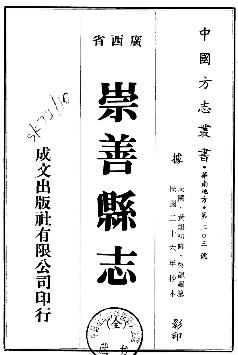 中國方志叢書・華南地方・第二〇三號
據
民國二十六年抄本
影印
廣西省
崇善縣志
(全)
成文出版社有限公司印行